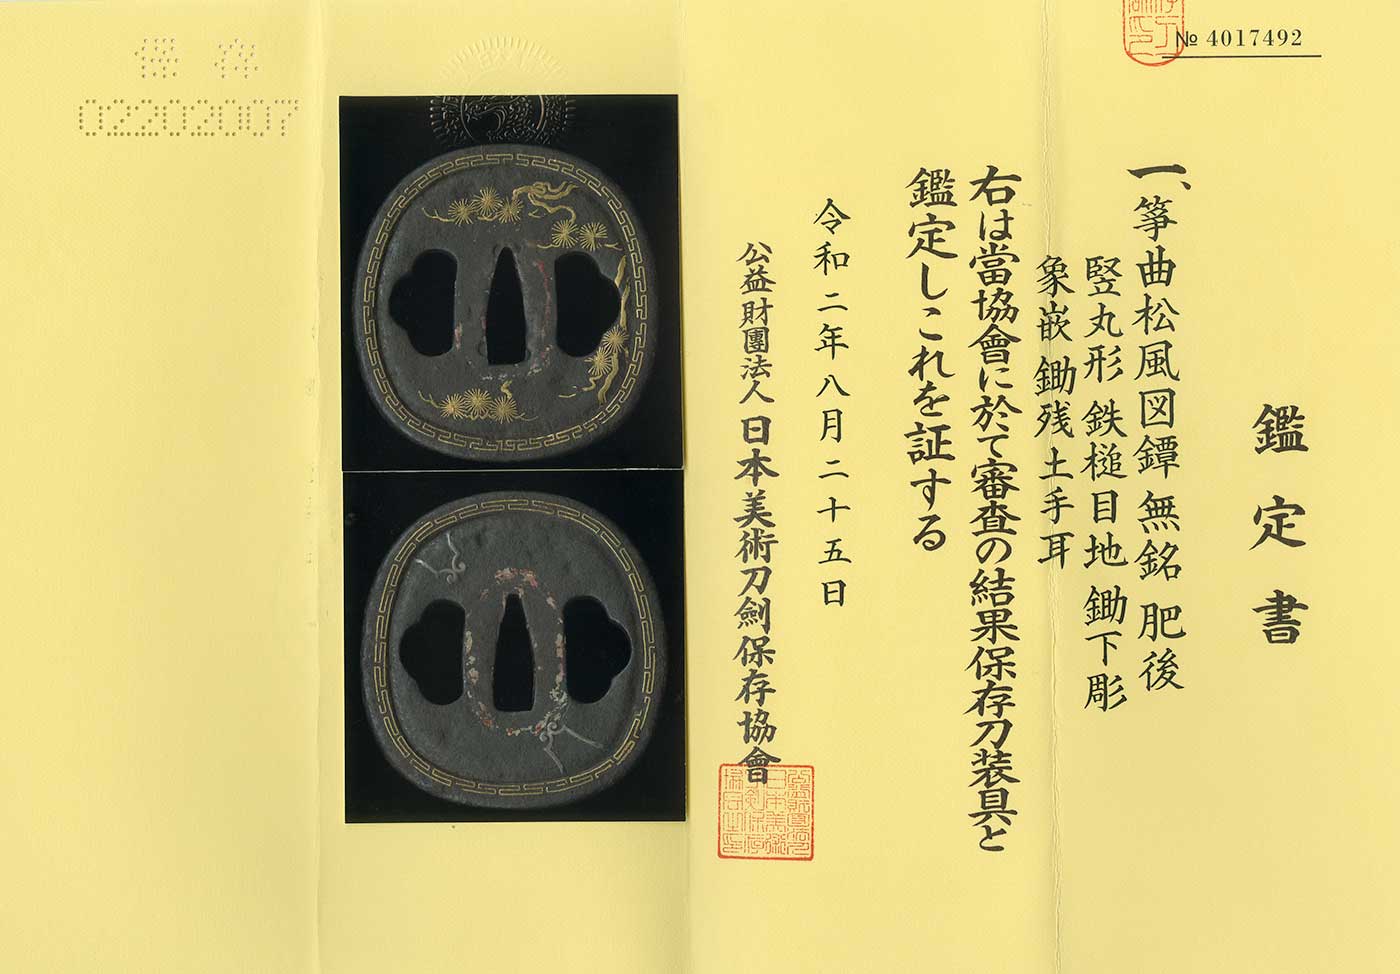 № 4017492
鑑定書
一、箏曲松風図鐔 無銘 肥後
竪丸形 鉄槌目地 鋤下彫
象嵌 鋤残土手耳
右は當協會に於て審査の結果保存刀装具と
鑑定しこれを証する
令和二年八月二十五日
公益財團法人 日本美術刀劍保存協會
保存
02202007